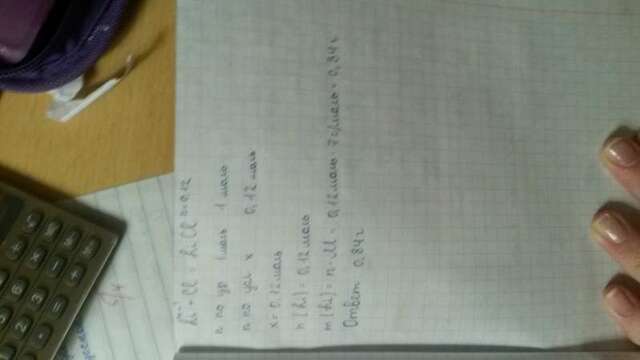 Li + Cl = LiCl
n по ур 1 моль 1 моль
n по усл x 0,12 моль
x = 0,12 моль
n(Li) = 0,12 моль
m(Li) = n · M = 0,12 моль · 7 г/моль = 0,84 г
Ответ 0,84 г